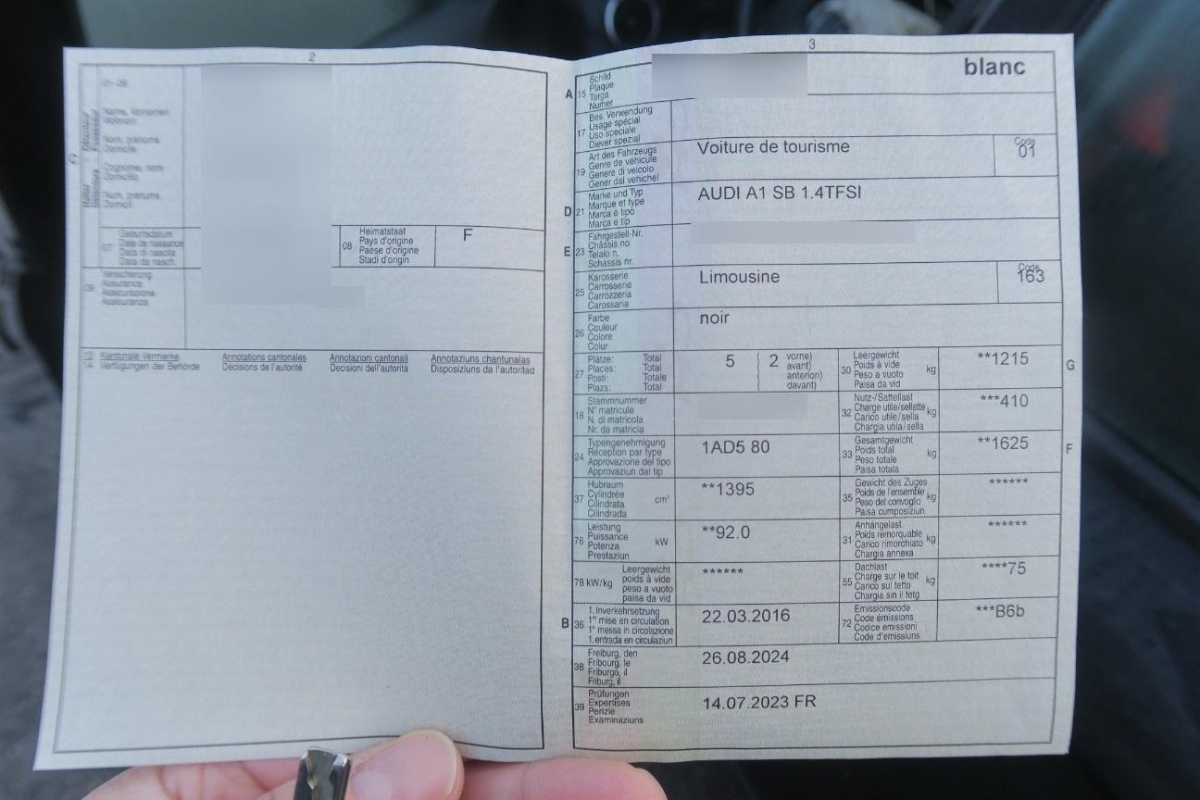 2
01-09
Name, Vornamen
Wohnort
Nom, prénoms
Domicile
Cognome, nomi
Domicilio
Num, prenums
Domicil
07
Geburtsdatum
Date de naissance
Data di nascita
Data da nasch.
08
Heimatstaat
Pays d'origine
Paese d'origine
Stadi d'origin
F
09
Versicherung
Assurance
Assicurazione
Assicuranza
13
14
Kantonale Vermerke
Verfügungen der Behörde
Annotations cantonales
Décisions de l'autorité
Annotazioni cantonali
Decisioni dell'autorità
Annotaziuns chantunalas
Disposiziuns da l'autoritad
3
A
15
Schild
Plaque
Targa
Numer
blanc
17
Bes. Verwendung
Usage spécial
Uso speciale
Diever spezial
19
Art des Fahrzeugs
Genre de véhicule
Genere di veicolo
Gener dal vehichel
Voiture de tourisme
Code
01
D
21
Marke und Typ
Marque et type
Marca e tipo
Marca e tip
AUDI A1 SB 1.4TFSI
E
23
Fahrgestell-Nr.
Châssis no
Telaio n.
Schassis nr.
25
Karosserie
Carrosserie
Carrozzeria
Carossaria
Limousine
Code
163
26
Farbe
Couleur
Colore
Colur
noir
27
Plätze: Total
Places: Total
Posti: Totale
Plazs: Total
5
2
vorne)
avant)
anteriori)
davant)
30
Leergewicht
Poids à vide
Peso a vuoto
Paisa da vid
kg
**1215
G
18
Stammnummer
N° matricule
N. di matricola
Nr. da matricla
32
Nutz-/Sattellast
Charge utile/sellette
Carico utile/sella
Chargia utila/sella
kg
***410
24
Typengenehmigung
Réception par type
Approvazione del tipo
Approvaziun dal tip
1AD5 80
33
Gesamtgewicht
Poids total
Peso totale
Paisa totala
kg
**1625
F
37
Hubraum
Cylindrée
Cilindrata
Cilindrada
cm³
**1395
35
Gewicht des Zuges
Poids de l'ensemble
Peso del convoglio
Paisa cumposiziun
kg
******
76
Leistung
Puissance
Potenza
Prestaziun
kW
**92.0
31
Anhängelast
Poids remorquable
Carico rimorchiato
Chargia annexa
kg
******
78 kW/kg
Leergewicht
poids à vide
peso a vuoto
paisa da vid
******
55
Dachlast
Charge sur le toit
Carico sul tetto
Chargia sin il tetg
kg
****75
B
36
1. Inverkehrsetzung
1re mise en circulation
1a messa in circolazione
1. entrada en circulaziun
22.03.2016
72
Emissionscode
Code émissions
Codice emissioni
Code d'emissiuns
***B6b
38
Freiburg, den
Fribourg, le
Friburgo, il
Friburg, il
26.08.2024
39
Prüfungen
Expertises
Perizie
Examinaziuns
14.07.2023 FR